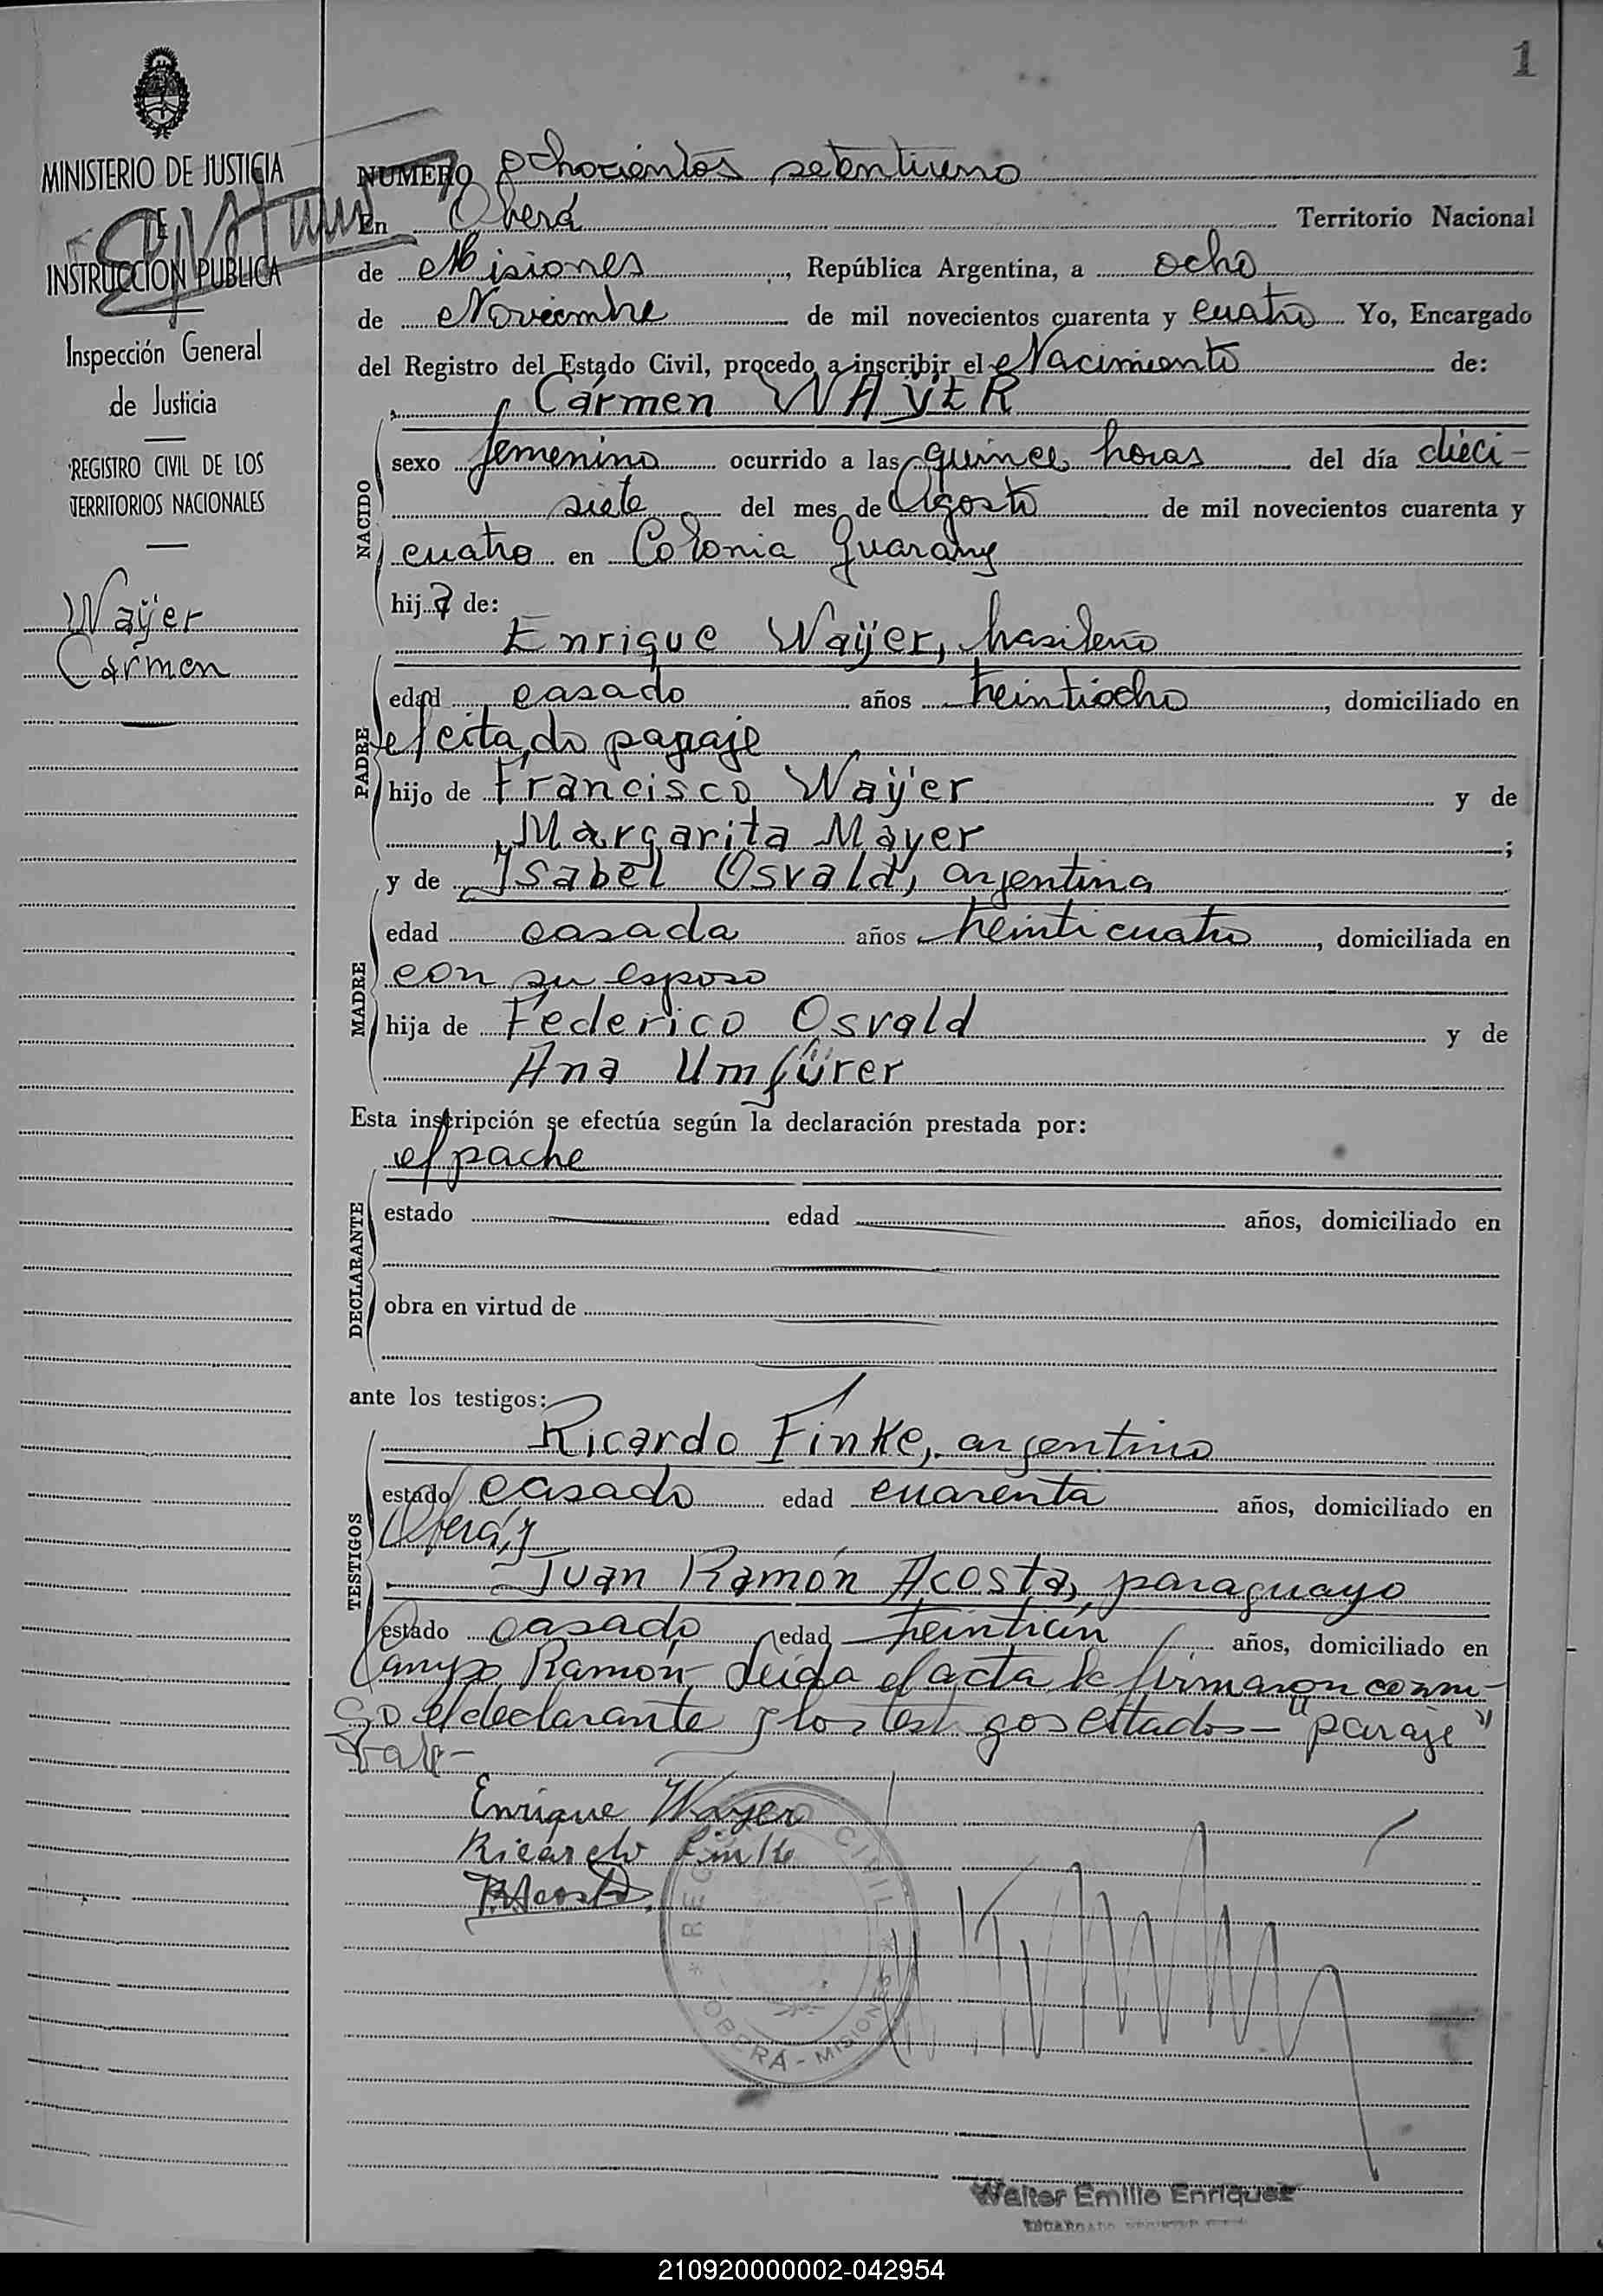 1
MINISTERIO DE JUSTICIA
DE
INSTRUCCION PUBLICA
Inspección General
de Justicia
REGISTRO CIVIL DE LOS
TERRITORIOS NACIONALES
Waÿer
Carmen
NUMERO ochocientos setentiuno
En Oberá Territorio Nacional
de Misiones, República Argentina, a ocho
de Noviembre de mil novecientos cuarenta y cuatro Yo, Encargado
del Registro del Estado Civil, procedo a inscribir el Nacimiento de:
Cármen WAŸER
NACIDO
sexo femenino ocurrido a las quince horas del día dieci-
siete del mes de Agosto de mil novecientos cuarenta y
cuatro en Colonia Guarany
hija de:
Enrique Waÿer, brasileno
PADRE
edad casado años treintiocho, domiciliado en
el citado paraje
hijo de Francisco Waÿer y de
Margarita Mayer;
y de Isabel Osvald, argentina
MADRE
edad casada años treinticuatro, domiciliada en
con su esposo
hija de Federico Osvald y de
Ana Umfürer
Esta inscripción se efectúa según la declaración prestada por:
el padre
DECLARANTE
estado edad años, domiciliado en
obra en virtud de
ante los testigos:
TESTIGOS
Ricardo Finke, argentino
estado casado edad cuarenta años, domiciliado en
Oberá, y
Juan Ramón Acosta, paraguayo
estado casado edad treintiún años, domiciliado en
Campo Ramón - Leida el acta la firmaron conmi-
go el declarante y los testigos citados - "paraje"
Vale -
Enrique Wayer
Ricardo Finke
J.R.Acosta
REG CIVIL
* OBERA - MISIONES *
Walter Emilio Enriquez
210920000002-042954